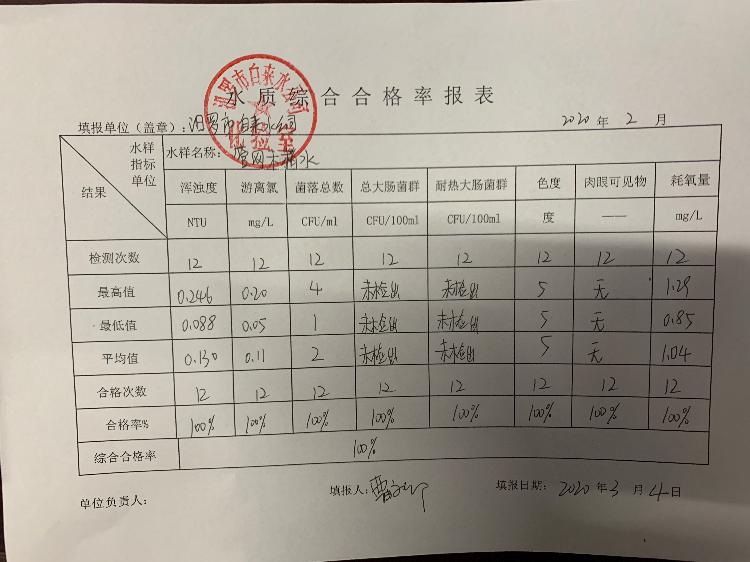 水质综合合格率报表
汨罗市自来水公司
化验室
填报单位（盖章）：汨罗市自来水公司 2020 年 2 月
水样 指标 单位 结果 水样名称：管网末梢水
浑浊度 游离氯 菌落总数 总大肠菌群 耐热大肠菌群 色度 肉眼可见物 耗氧量
NTU mg/L CFU/ml CFU/100ml CFU/100ml 度 —— mg/L
检测次数 12 12 12 12 12 12 12 12
最高值 0.246 0.20 4 未检出 未检出 5 无 1.29
最低值 0.088 0.05 1 未检出 未检出 5 无 0.85
平均值 0.130 0.11 2 未检出 未检出 5 无 1.04
合格次数 12 12 12 12 12 12 12 12
合格率% 100% 100% 100% 100% 100% 100% 100% 100%
综合合格率 100%
单位负责人： 填报人： 填报日期： 2020 年 3 月 4 日